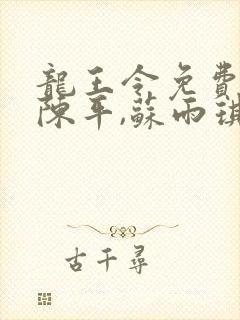 龍王令免費
陳平,蘇雨琪
古千尋